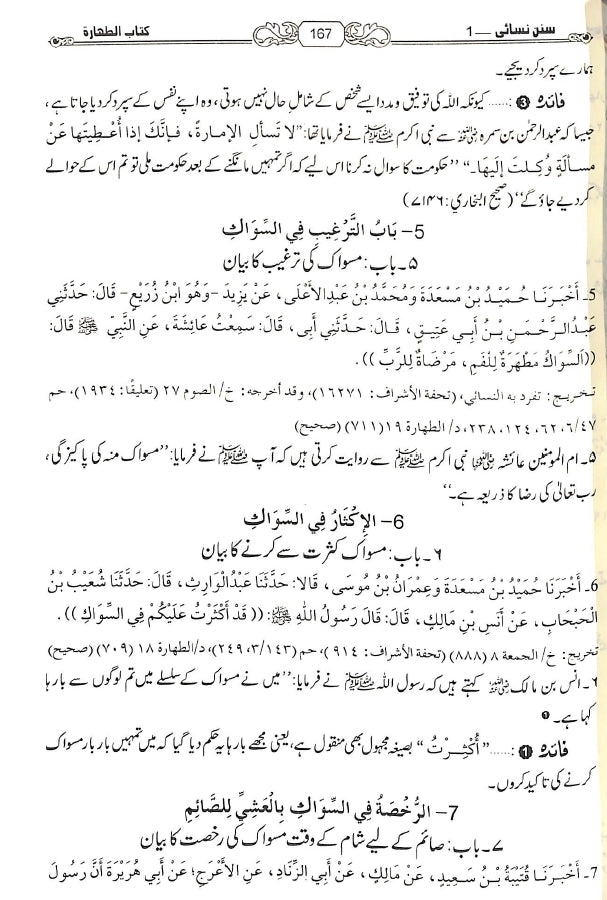 سنن نسائی — 1
167
کتاب الطهارة
ہمارے سپرد کر دیجیے۔
فائدہ ③ :...... کیونکہ اللہ کی توفیق و مدد ایسے شخص کے شامل حال نہیں ہوتی، وہ اپنے نفس کے سپرد کر دیا جاتا ہے،
جیسا کہ عبدالرحمٰن بن سمرہ رضی اللہ عنہ سے نبی اکرم ﷺ نے فرمایا تھا: ”لا تَسألِ الإمارةَ، فَإنَّكَ إذا أُعطِيتَها عَنْ
مسألةٍ وُكِلتَ إليها۔“ ”حکومت کا سوال نہ کرنا اس لیے کہ اگر تمہیں مانگنے کے بعد حکومت ملی تو تم اس کے حوالے
کر دیے جاؤ گے‘‘ (صحیح البخاری: ۷۱۴۶)
5- بَابُ التَّرْغِيبِ فِي السِّوَاكِ
۵۔ باب: مسواک کی ترغیب کا بیان
5۔ أَخْبَرَنَا حُمَيْدُ بْنُ مَسْعَدَةَ وَمُحَمَّدُ بْنُ عَبْدِالأَعْلَى، عَنْ يَزِيدَ -وَهُوَ ابْنُ زُرَيْعٍ- قَالَ: حَدَّثَنِي
عَبْدُالرَّحْمٰنِ بْنُ أَبِي عَتِيقٍ، قَالَ: حَدَّثَنِي أَبِي، قَالَ: سَمِعْتُ عَائِشَةَ، عَنِ النَّبِيِّ ﷺ قَالَ:
((اَلسِّوَاكُ مَطْهَرَةٌ لِلْفَمِ، مَرْضَاةٌ لِلرَّبِّ)).
تخريج: تفرد به النسائي، (تحفة الأشراف: ١٦٢٧١)، وقد أخرجه: خ/الصوم ٢٧ (تعليقًا: ١٩٣٤)، حم
٦/٤٧، ٦٢، ١٢٤، ٢٣٨، د/الطهارة ١٩ (٧١١) (صحيح)
۵۔ ام المومنین عائشہ رضی اللہ عنہا نبی اکرم ﷺ سے روایت کرتی ہیں کہ آپ ﷺ نے فرمایا: ’’مسواک منہ کی پاکیزگی،
رب تعالیٰ کی رضا کا ذریعہ ہے۔‘‘
6- الإِكْثَارُ فِي السِّوَاكِ
۶۔ باب: مسواک کثرت سے کرنے کا بیان
6۔ أَخْبَرَنَا حُمَيْدُ بْنُ مَسْعَدَةَ وَعِمْرَانُ بْنُ مُوسَى، قَالا: حَدَّثَنَا عَبْدُالْوَارِثِ، قَالَ: حَدَّثَنَا شُعَيْبُ بْنُ
الْحَبْحَابِ، عَنْ أَنَسِ بْنِ مَالِكٍ، قَالَ: قَالَ رَسُولُ اللهِ ﷺ: ((قَدْ أَكْثَرْتُ عَلَيْكُمْ فِي السِّوَاكِ)).
تخريج: خ/الجمعة ٨ (٨٨٨) (تحفة الأشراف: ٩١٤)، حم (٣/١٤٣، ٢٤٩)، د/الطهارة ١٨ (٧٠٩) (صحيح)
۶۔ انس بن مالک رضی اللہ عنہ کہتے ہیں کہ رسول اللہ ﷺ نے فرمایا: ’’میں نے مسواک کے سلسلے میں تم لوگوں سے بارہا
کہا ہے۔ ❶
فائدہ ❶ :...... ”أُكْثِرْتُ“ بصیغہ مجہول بھی منقول ہے، یعنی مجھے بارہا یہ حکم دیا گیا کہ میں تمہیں بار بار مسواک
کرنے کی تاکید کروں۔
7- الرُّخْصَةُ فِي السِّوَاكِ بِالْعَشِيِّ لِلصَّائِمِ
۷۔ باب: صائم کے لیے شام کے وقت مسواک کی رخصت کا بیان
7۔ أَخْبَرَنَا قُتَيْبَةُ بْنُ سَعِيدٍ، عَنْ مَالِكٍ، عَنْ أَبِي الزِّنَادِ، عَنِ الأَعْرَجِ؛ عَنْ أَبِي هُرَيْرَةَ أَنَّ رَسُولَ